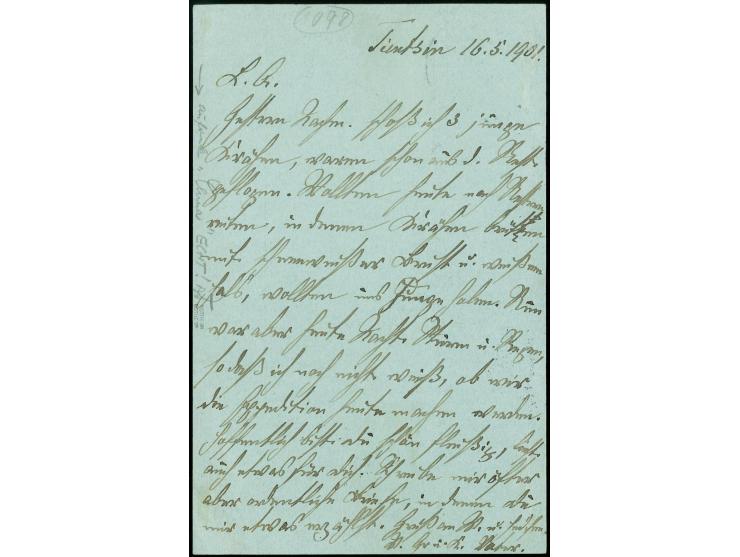 1098
Tientsin 16.5.1901.
L. G.
Gestern Nachm. schoß ich 3 junge
Krähen, waren schon aus d. Nest
geflogen. Wollten heute nach Nestern
reiten, in denen Krähen brüten
mit schneeweißer Brust u. weißem
Hals, wollten uns Junge holen. Nun
war aber heute Nacht Sturm u. Regen,
so daß ich noch nicht weiß, ob wir
die Expedition heute machen werden.
Hoffentlich bist du schön fleißig,
auch etwas für dich. Schreibe mir öfter
aber ordentliche Briefe, in denen du
mir etwas erzählst. Gruß an M. u.
Vater.